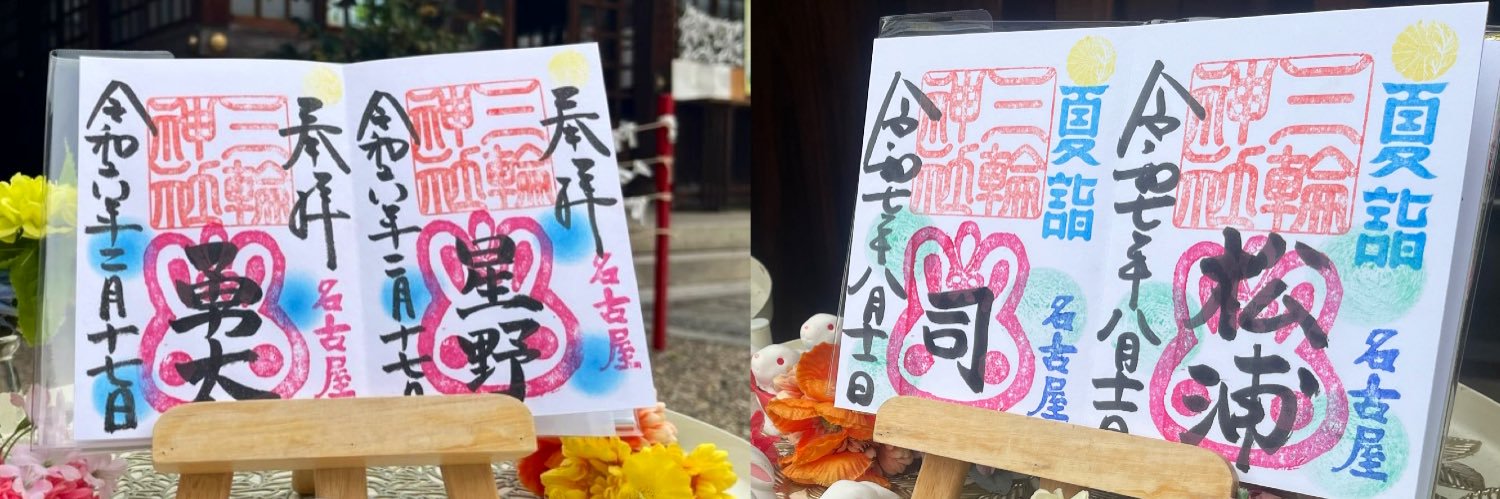 奉拝
三輪
神社
名古屋
星野
令和六年二月十七日
奉拝
三輪
神社
名古屋
勇太
令和六年二月十七日
夏詣
三輪
神社
名古屋
松浦
令和七年八月十二日
夏詣
三輪
神社
名古屋
司
令和七年八月十二日